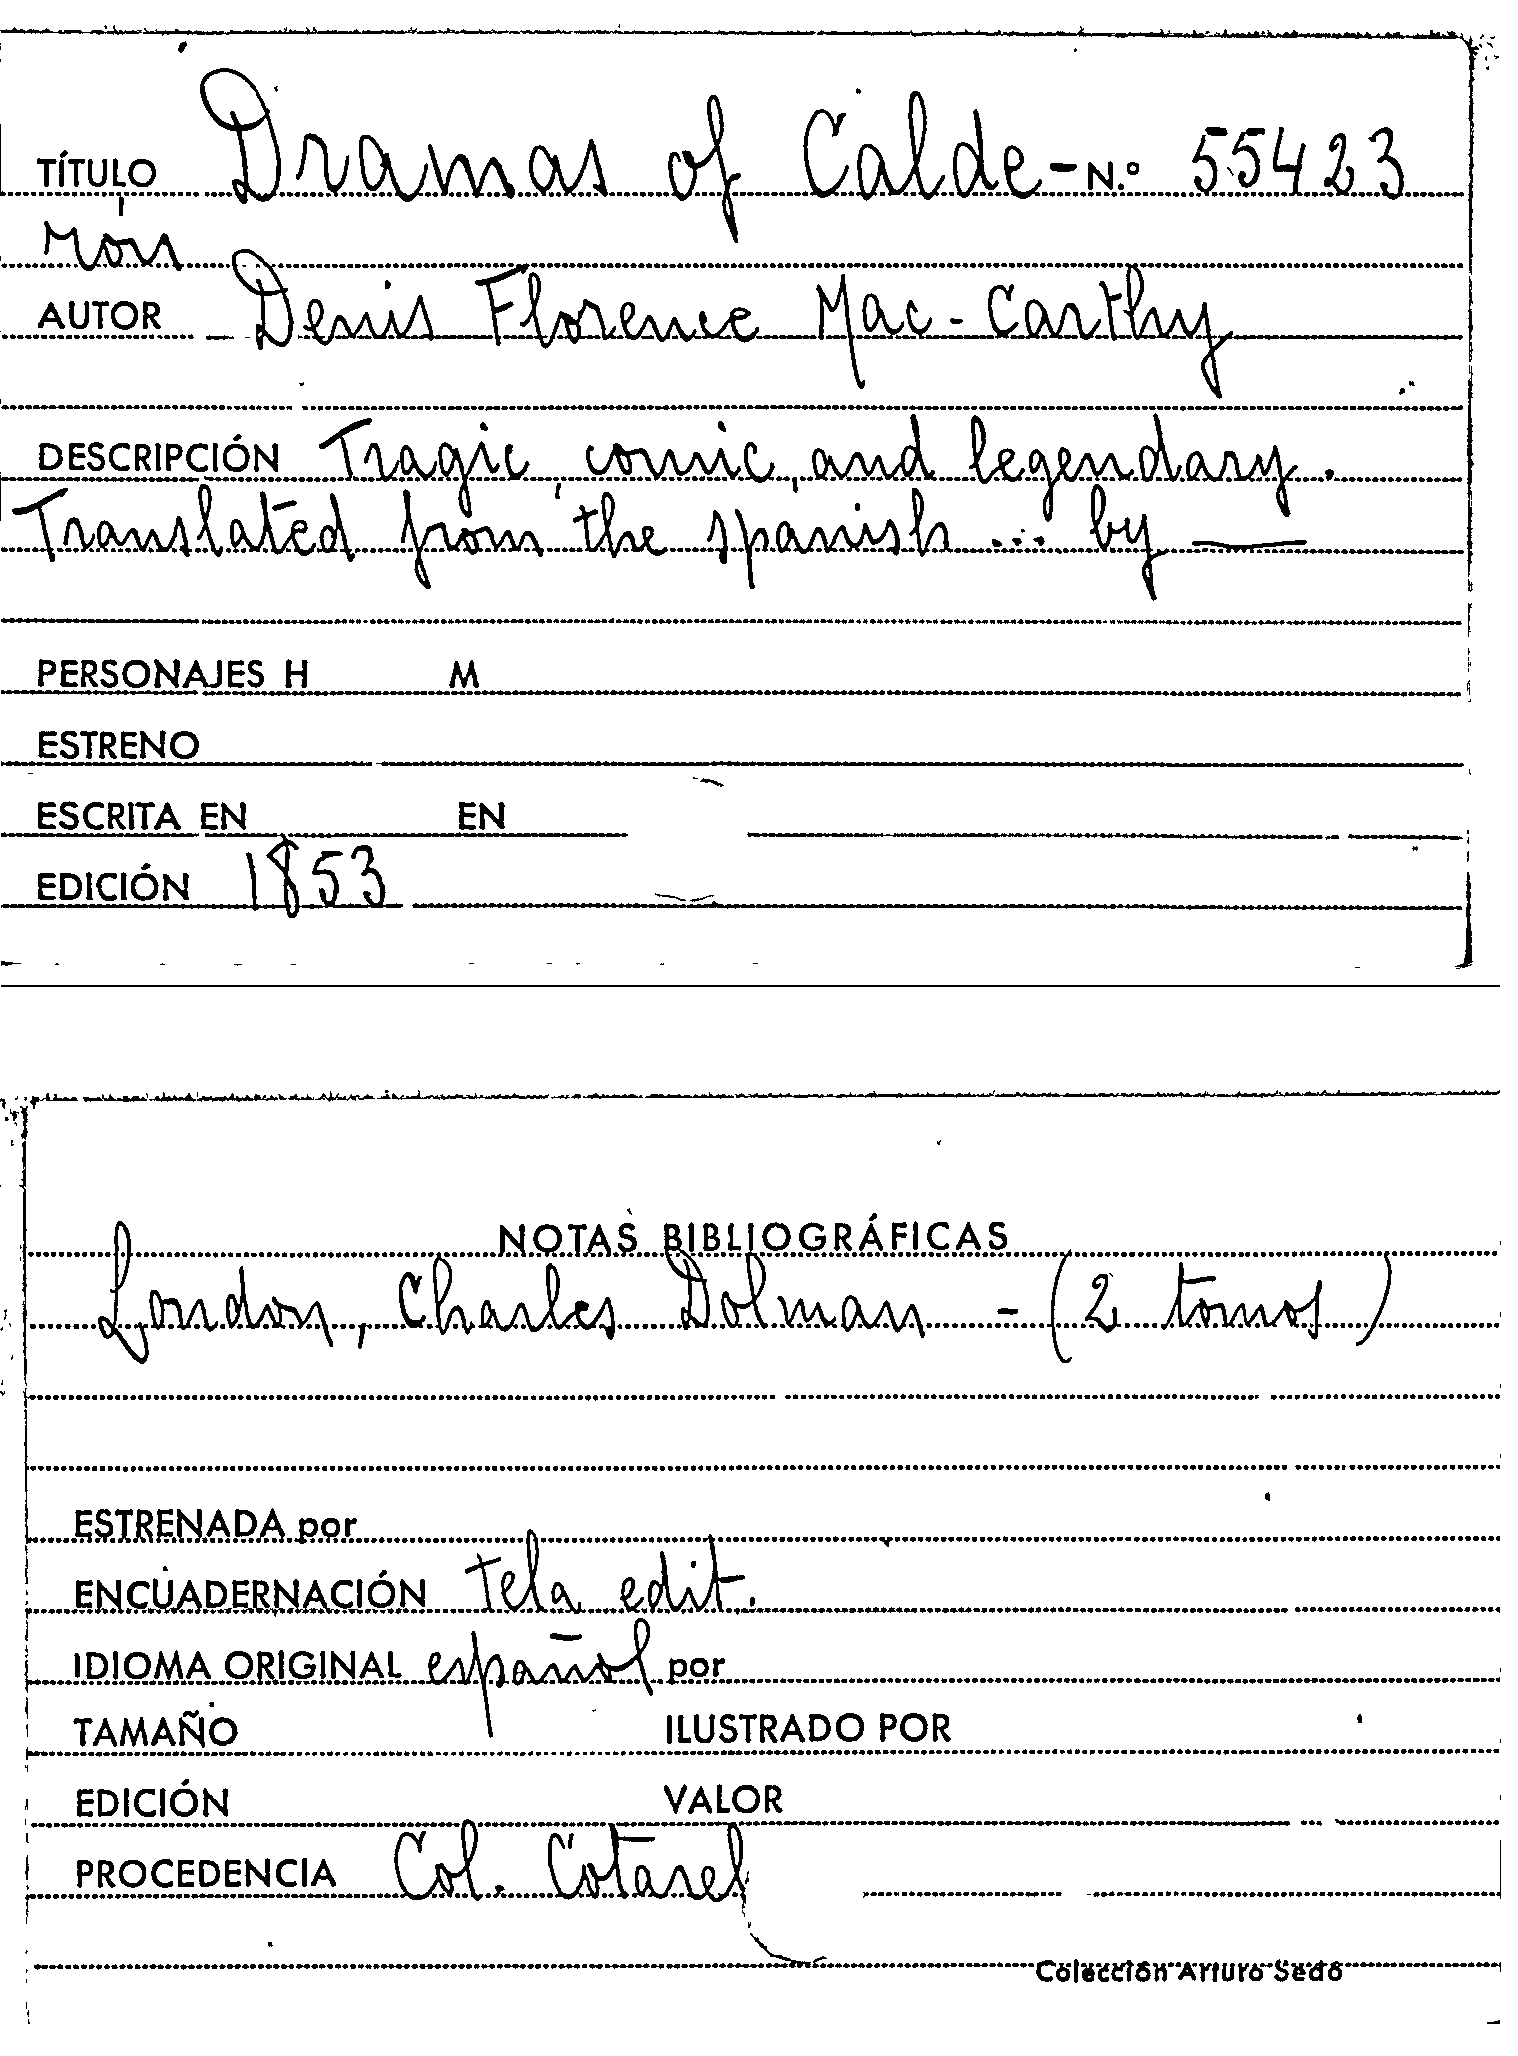 TÍTULO Dramas of Calde- N.º 55423
rón
AUTOR Denis Florence Mac-Carthy
DESCRIPCIÓN Tragic, comic, and legendary.
Translated from the spanish ... by ——
PERSONAJES H M
ESTRENO
ESCRITA EN EN
EDICIÓN 1853
NOTAS BIBLIOGRÁFICAS
London, Charles Dolman - (2 tomos)
ESTRENADA por
ENCUADERNACIÓN tela edit.
IDIOMA ORIGINAL español por
TAMAÑO ILUSTRADO POR
EDICIÓN VALOR
PROCEDENCIA Col. Cotarel
Colección Arturo Sedó